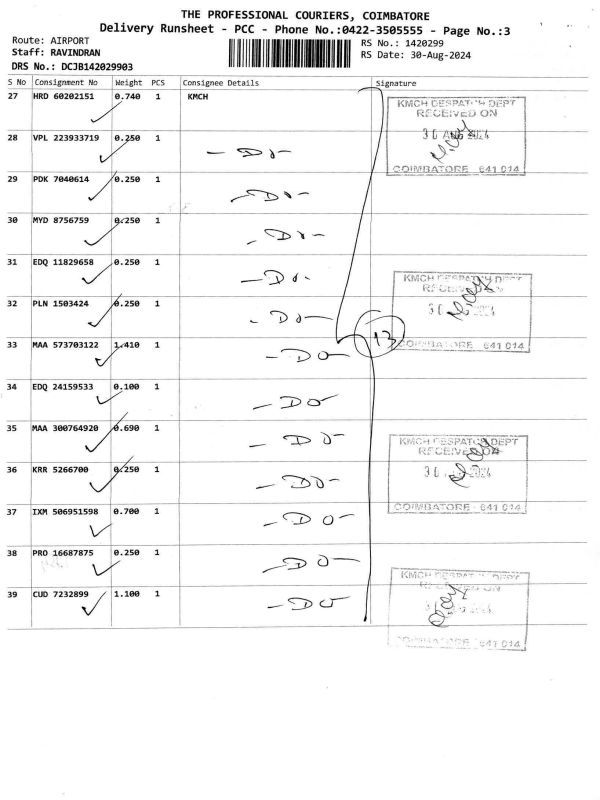 THE PROFESSIONAL COURIERS, COIMBATORE
Delivery Runsheet - PCC - Phone No.:0422-3505555 - Page No.:3
Route: AIRPORT
Staff: RAVINDRAN
DRS No.: DCJB142029903
RS No.: 1420299
RS Date: 30-Aug-2024
S No Consignment No Weight PCS Consignee Details Signature
27 HRD 60202151 0.740 1 KMCH
28 VPL 223933719 0.250 1 - Do -
29 PDK 7040614 0.250 1 - Do -
30 MYD 8756759 0.250 1 - Do -
31 EDQ 11829658 0.250 1 - Do -
32 PLN 1503424 0.250 1 - Do -
33 MAA 573703122 1.410 1 - DO -
34 EDQ 24159533 0.100 1 - DO
35 MAA 300764920 0.690 1 - DO -
36 KRR 5266700 0.250 1 - DO -
37 IXM 506951598 0.700 1 - DO -
38 PRO 16687875 0.250 1 - DO -
39 CUD 7232899 1.100 1 - DO
13
KMCH DESPATCH DEPT
RECEIVED ON
30 AUG 2024
COIMBATORE 641 014
KMCH DESPATCH DEPT
RECEIVED ON
30 2024
COIMBATORE 641 014
KMCH DESPATCH DEPT
RECEIVED ON
30 2024
COIMBATORE 641 014
KMCH DESPATCH DEPT
RECEIVED ON
COIMBATORE 641 014